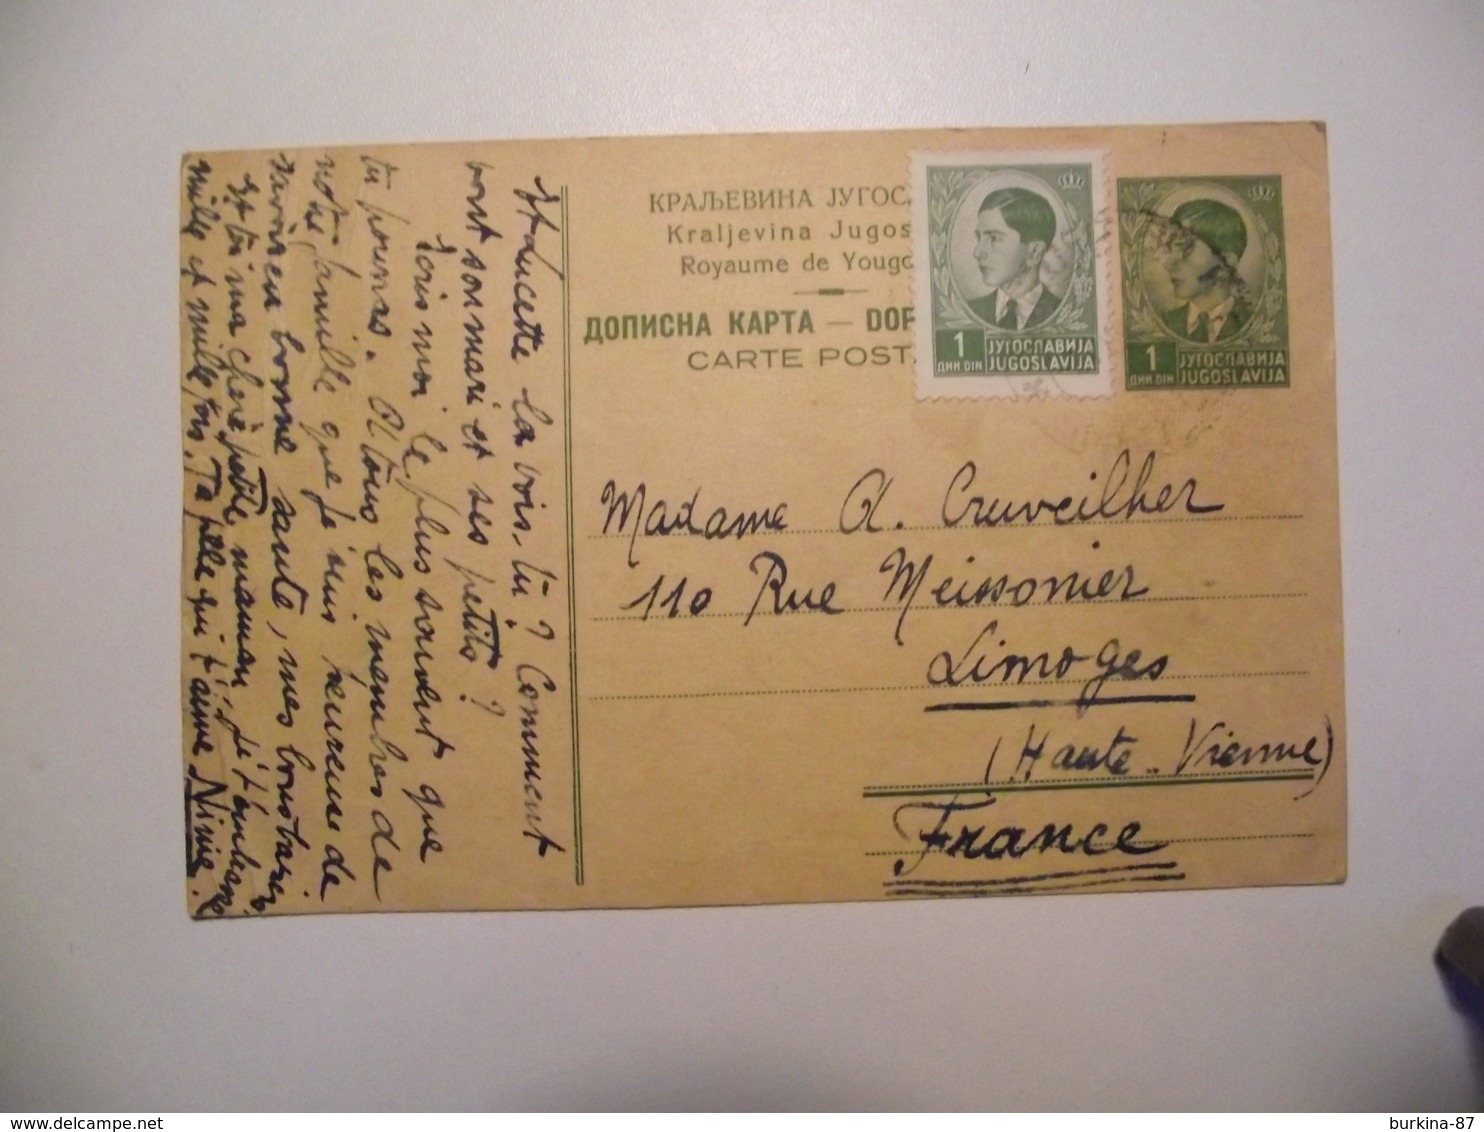 КРАЉЕВИНА ЈУГОС
Kraljevina Jugos
Royaume de Yougo
ДОПИСНА КАРТА — DOP
CARTE POST
1
ДИН. DIN
ЈУГОСЛАВИЈА
JUGOSLAVIJA
1
ДИН. DIN
ЈУГОСЛАВИЈА
JUGOSLAVIJA
Madame A. Cruveilher
110 Rue Meissonier
Limoges
(Haute-Vienne)
France
Et Lucette la vois-tu ? Comment
vont son mari et ses petits ?
Écris moi le plus souvent que
tu pourras. Et tous les membres de
notre famille que je suis heureuse de
savoir en bonne santé, mes baisers
Et toi ma chère petite maman, je t'embrasse
mille et mille fois. Ta fille qui t'aime Ninie.
burkina-87